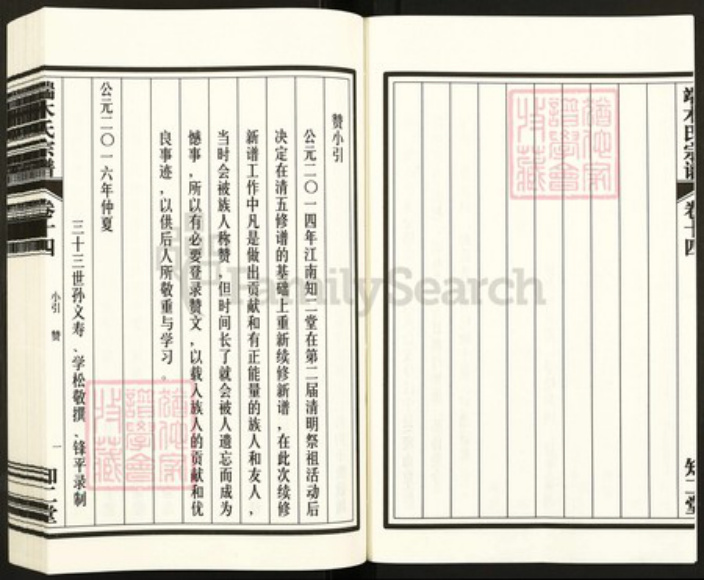 赞小引
公元二〇一四年江南知二堂在第二届清明祭祖活动后
决定在清五修谱的基础上重新续修新谱，在此次续修
新谱工作中凡是做出贡献和有正能量的族人和友人，
当时会被族人称赞，但时间长了就会被人遗忘而成为
憾事，所以有必要登录赞文，以载入族人的贡献和优
良事迹，以供后人所敬重与学习。
公元二〇一六年仲夏
三十三世孙文寿、学松敬撰、锋平录制
端木氏宗谱
卷十四
小引 赞
一
知二堂
端木氏宗谱
卷十四
知二堂
FamilySearch